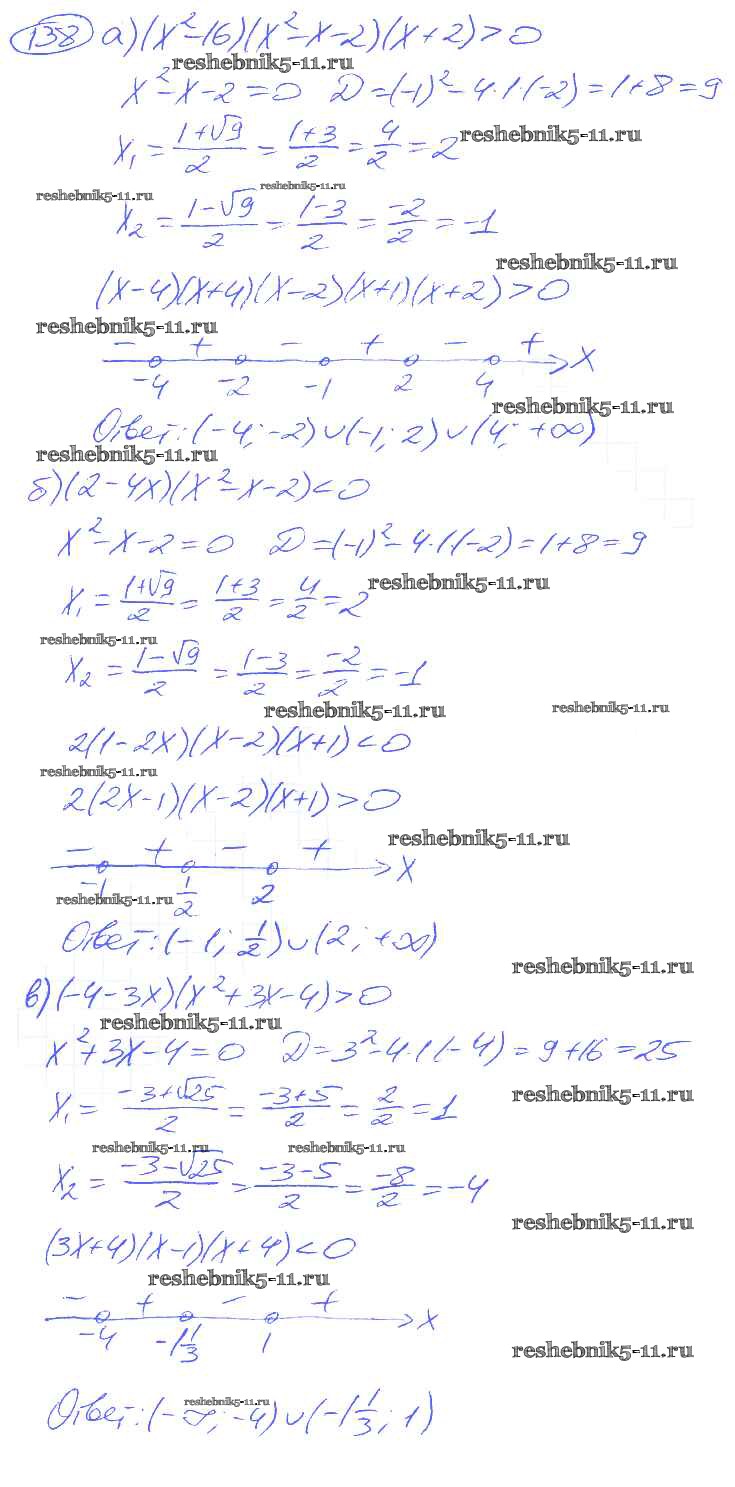 138 а) (x²-16)(x²-x-2)(x+2)>0
reshebnik5-11.ru
x²-x-2=0 D=(-1)²-4·1·(-2)=1+8=9
x₁ = (1+√9)/2 = (1+3)/2 = 4/2 = 2
reshebnik5-11.ru
reshebnik5-11.ru
reshebnik5-11.ru
x₂ = (1-√9)/2 = (1-3)/2 = -2/2 = -1
reshebnik5-11.ru
(x-4)(x+4)(x-2)(x+1)(x+2)>0
reshebnik5-11.ru
- + - + - + x
-4 -2 -1 2 4
reshebnik5-11.ru
Ответ: (-4; -2)∪(-1; 2)∪(4; +∞)
reshebnik5-11.ru
б) (2-4x)(x²-x-2)<0
x²-x-2=0 D=(-1)²-4·1·(-2)=1+8=9
x₁ = (1+√9)/2 = (1+3)/2 = 4/2 = 2
reshebnik5-11.ru
reshebnik5-11.ru
x₂ = (1-√9)/2 = (1-3)/2 = -2/2 = -1
reshebnik5-11.ru
reshebnik5-11.ru
2(1-2x)(x-2)(x+1)<0
reshebnik5-11.ru
2(2x-1)(x-2)(x+1)>0
reshebnik5-11.ru
- + - + x
-1 1/2 2
reshebnik5-11.ru
Ответ: (-1; 1/2)∪(2; +∞)
reshebnik5-11.ru
в) (-4-3x)(x²+3x-4)>0
reshebnik5-11.ru
x²+3x-4=0 D=3²-4·1·(-4)=9+16=25
x₁ = (-3+√25)/2 = (-3+5)/2 = 2/2 = 1
reshebnik5-11.ru
reshebnik5-11.ru
reshebnik5-11.ru
x₂ = (-3-√25)/2 = (-3-5)/2 = -8/2 = -4
reshebnik5-11.ru
(3x+4)(x-1)(x+4)<0
reshebnik5-11.ru
- + - + x
-4 -1 1/3 1
reshebnik5-11.ru
reshebnik5-11.ru
Ответ: (-∞; -4)∪(-1 1/3; 1)